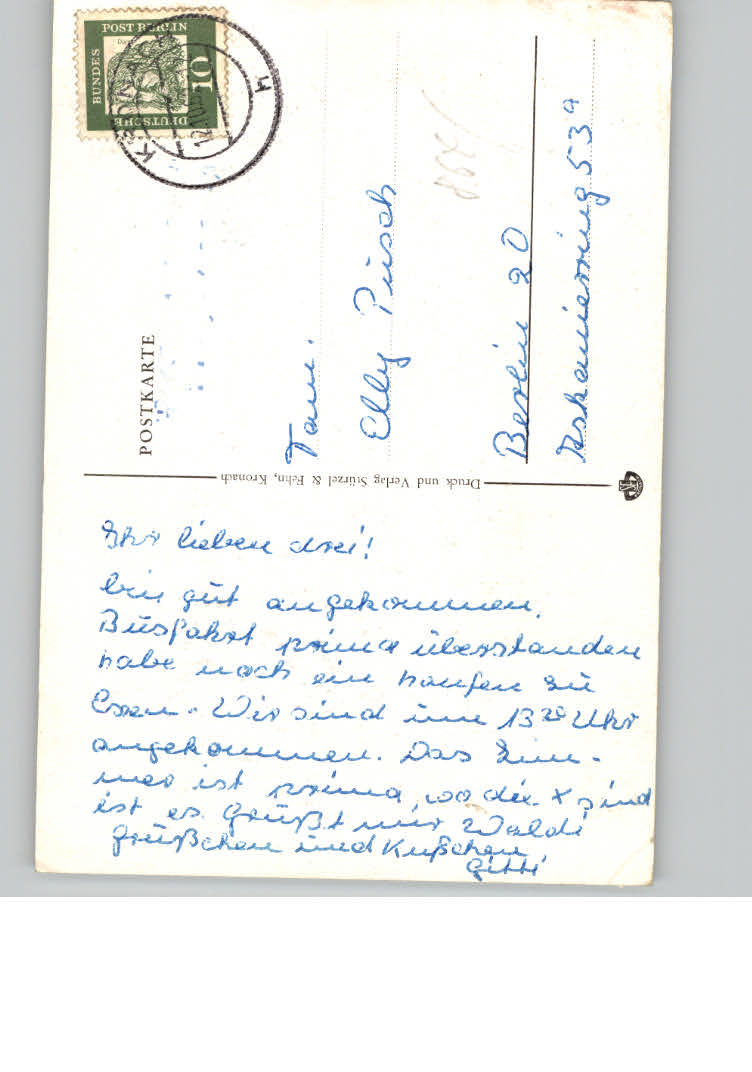 DEUTSCHE
BUNDES
POST BERLIN
10
H
POSTKARTE
Fam.
Elly Püsch
Berlin 20
Askanierring 53a
Druck und Verlag Stürzel & Fehn, Kronach
Ihr lieben drei!
bin gut angekommen,
Busfahrt prima überstanden
habe noch ein haufen zu
Essen. Wir sind um 13 20 Uhr
angekommen. Das Zim-
mer ist prima, wo die x sind
ist es. Grüßt mir Waldi
Grüßchen und Küßchen
Gitti